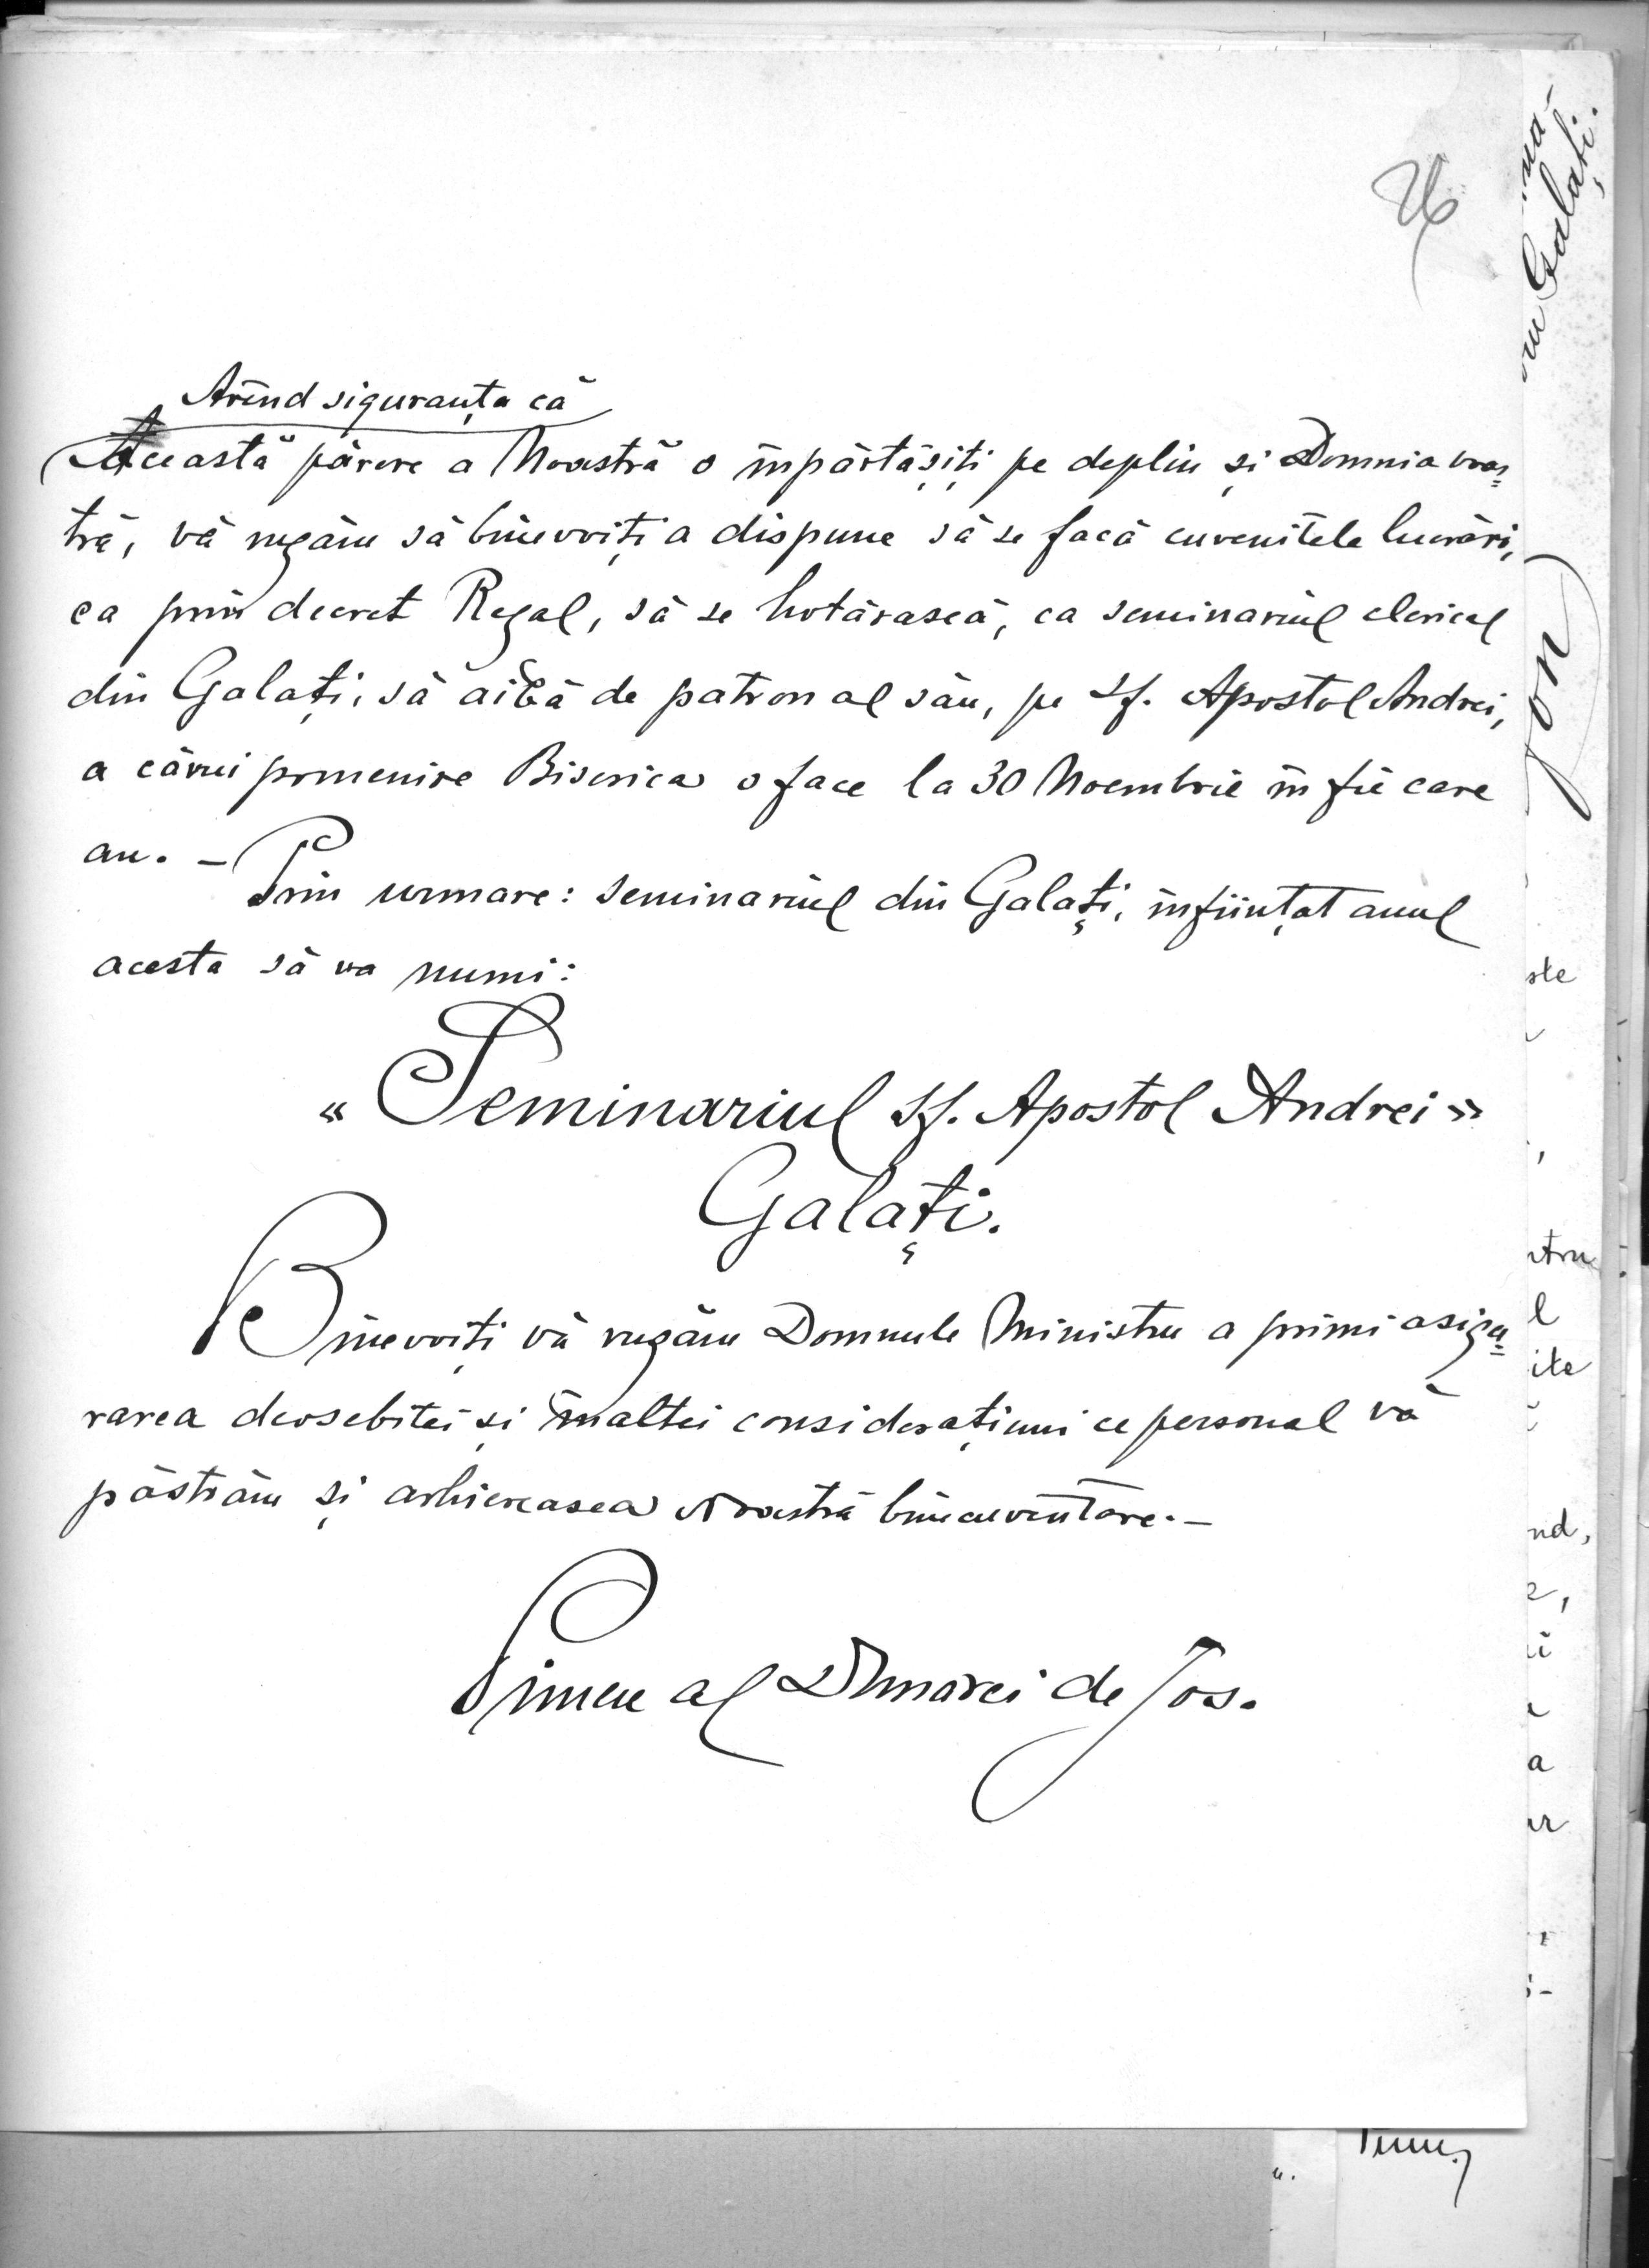 26
Avênd siguranța că
Această părere a Noastră o împărtășiți pe deplin și Domnia voas=
tră, vă rugăm să binevoiți a dispune să se facă cuvenitele lucrări,
ca prin decret Regal, să se hotărască, ca seminariul clerical
din Galați, să aibă de patron al său, pe Sf. Apostol Andrei,
a cărui pomenire Biserica o face la 30 Noembrie în fie care
an. —
Prin urmare: seminariul din Galați, înființat anul
acesta să va numi:
« Seminariul Sf. Apostol Andrei »
Galați.
Binevoiți vă rugăm Domnule Ministru a primi asigu=
rarea deosebitei și înaltei considerațiuni ce personal vă
păstrăm și arhiereasca Noastră binecuvântare. —
Pimen al Dunărei de Jos.
Galați.